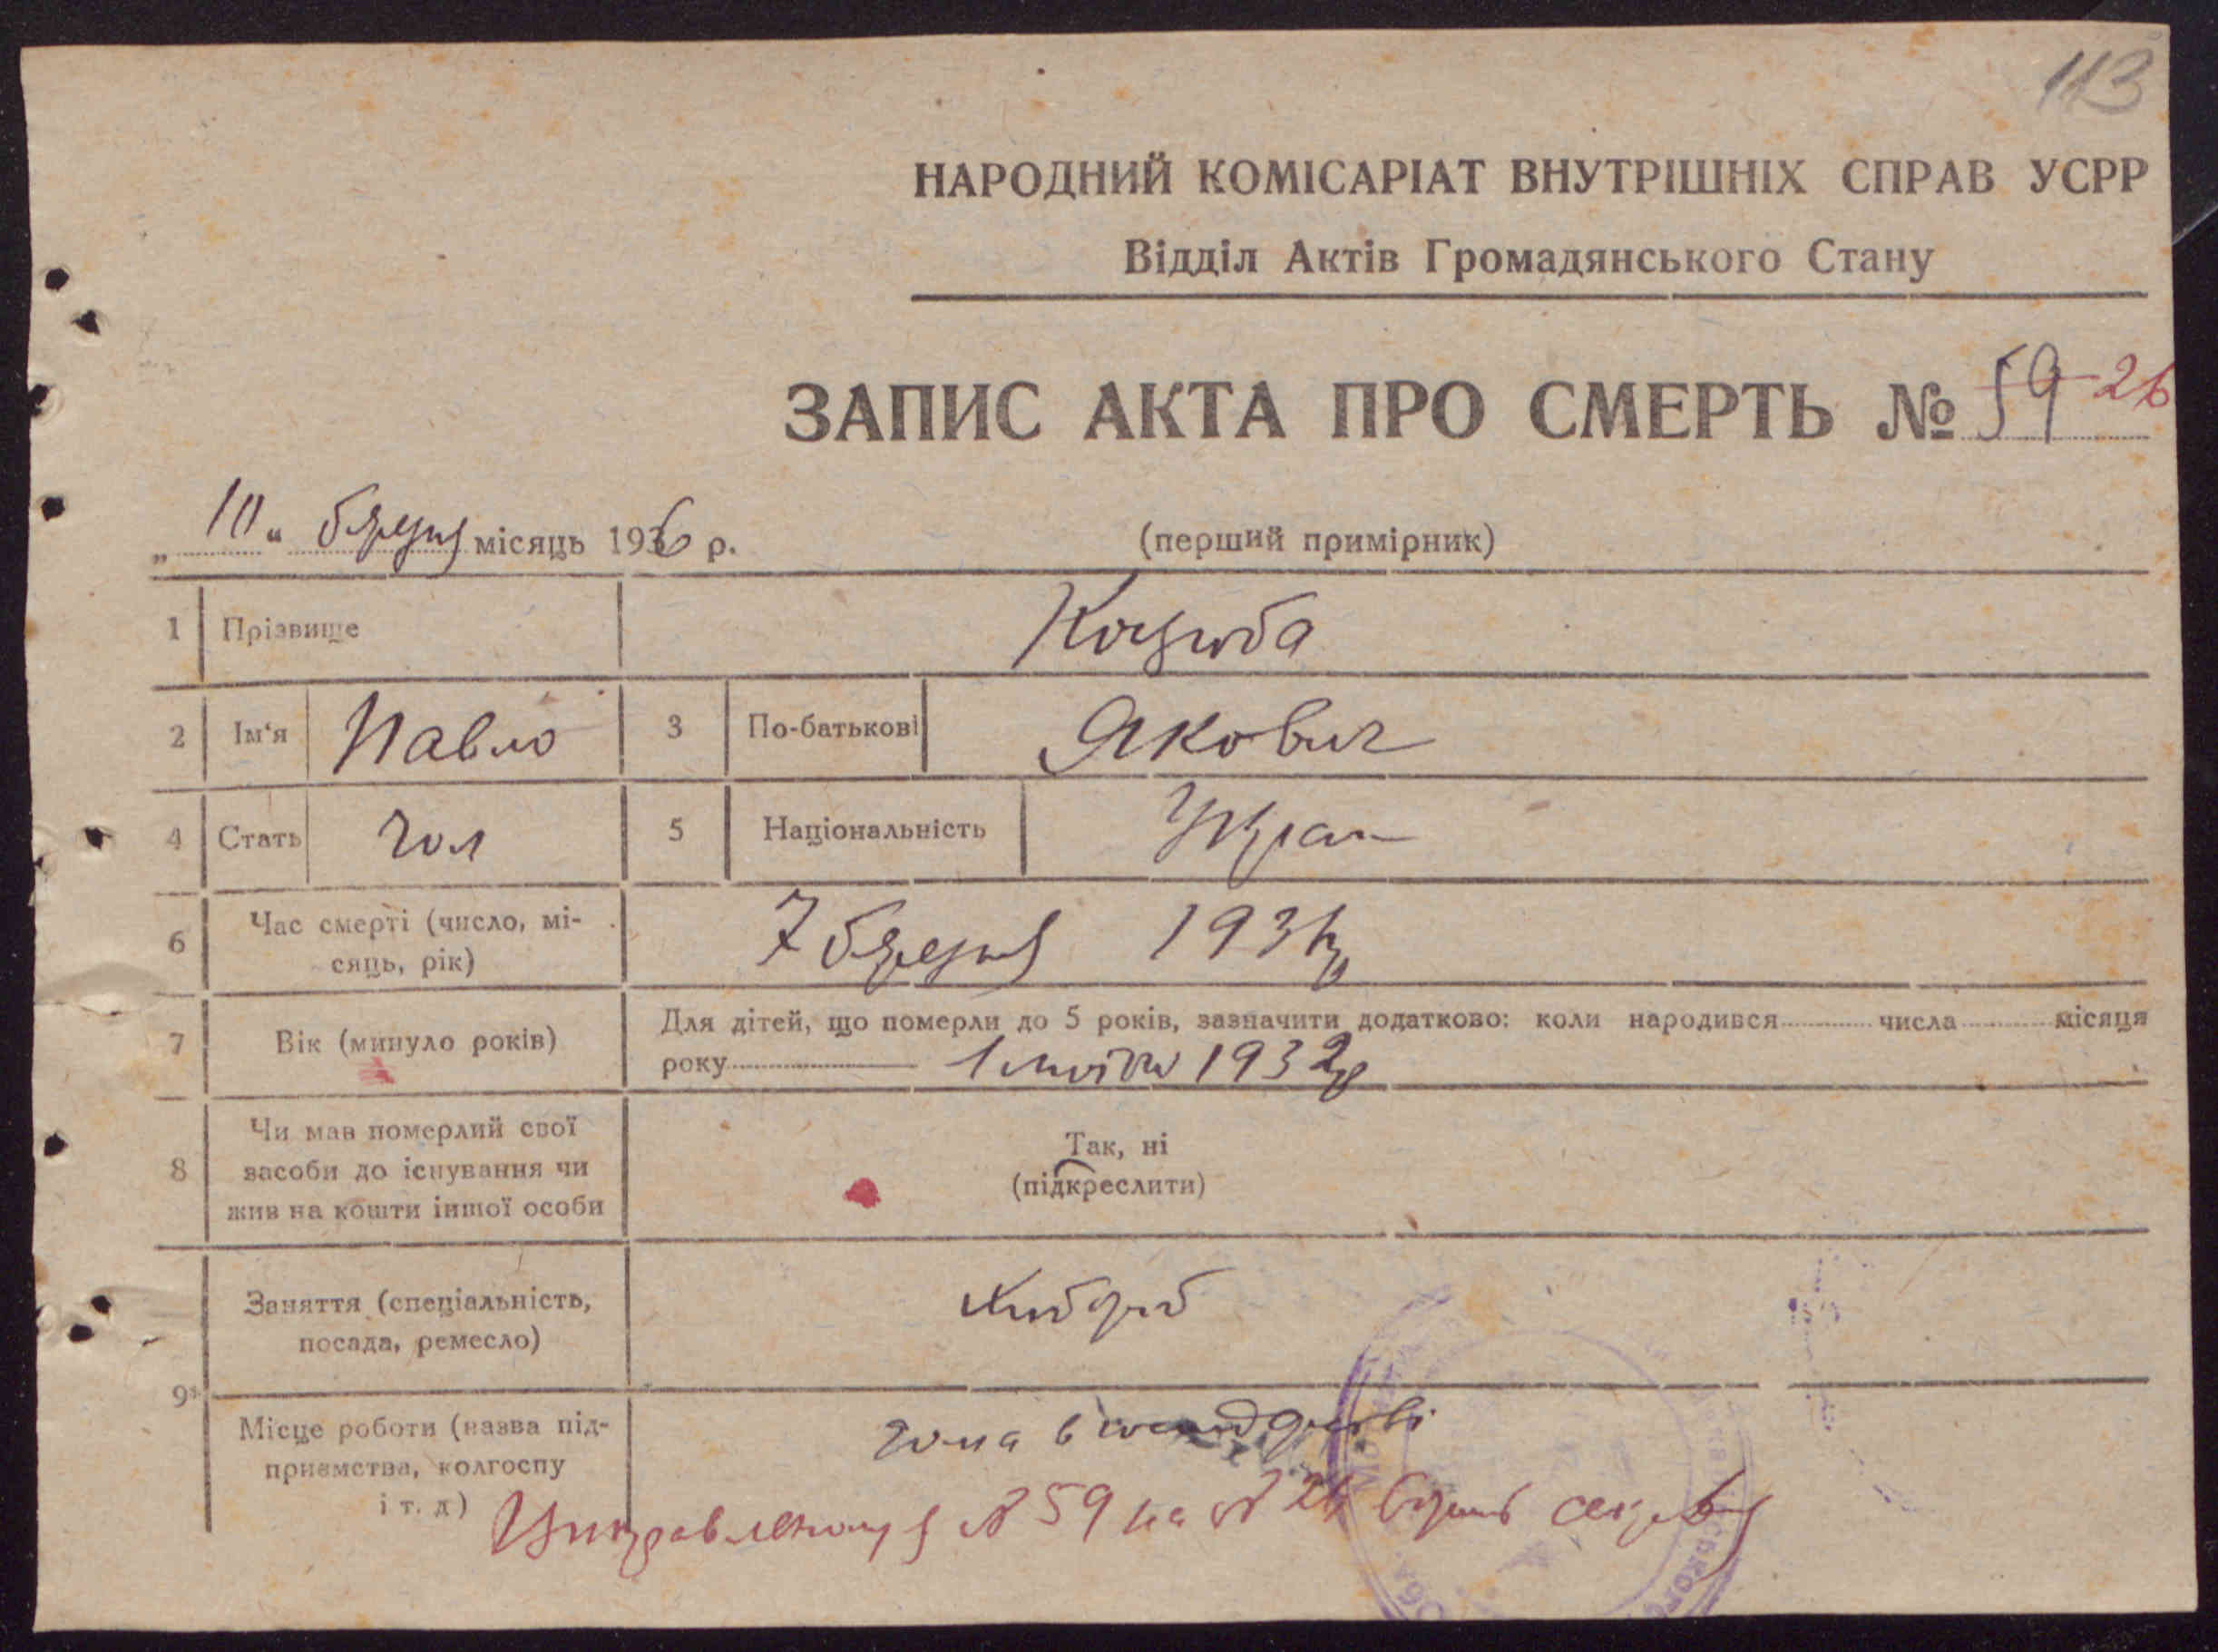 113
НАРОДНИЙ КОМІСАРІАТ ВНУТРІШНІХ СПРАВ УСРР
Відділ Актів Громадянського Стану
ЗАПИС АКТА ПРО СМЕРТЬ № 59 26
„10“ березня місяць 1936 р.
(перший примірник)
1 Прізвище Коцюба
2 Ім‘я Павло 3 По-батькові Якович
4 Стать чол 5 Національність Укра
6 Час смерті (число, мі-
сяць, рік) 7 березня 1936 р
7 Вік (минуло років) Для дітей, що померли до 5 років, зазначити додатково: коли народився числа місяця
року 1 1932 р
8 Чи мав померлий свої
засоби до існування чи
жив на кошти іншої особи
Так, ні
(підкреслити)
9 Заняття (спеціальність,
посада, ремесло) хлібороб
Місце роботи (назва під-
приємства, колгоспу
і т. д)
дома в господарстві
№ 59 на № 26